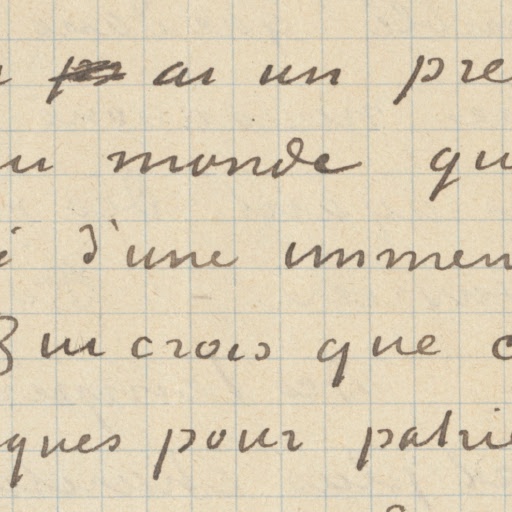 ai un pre
monde qu
d'une immen
crois que c
ques pour patri